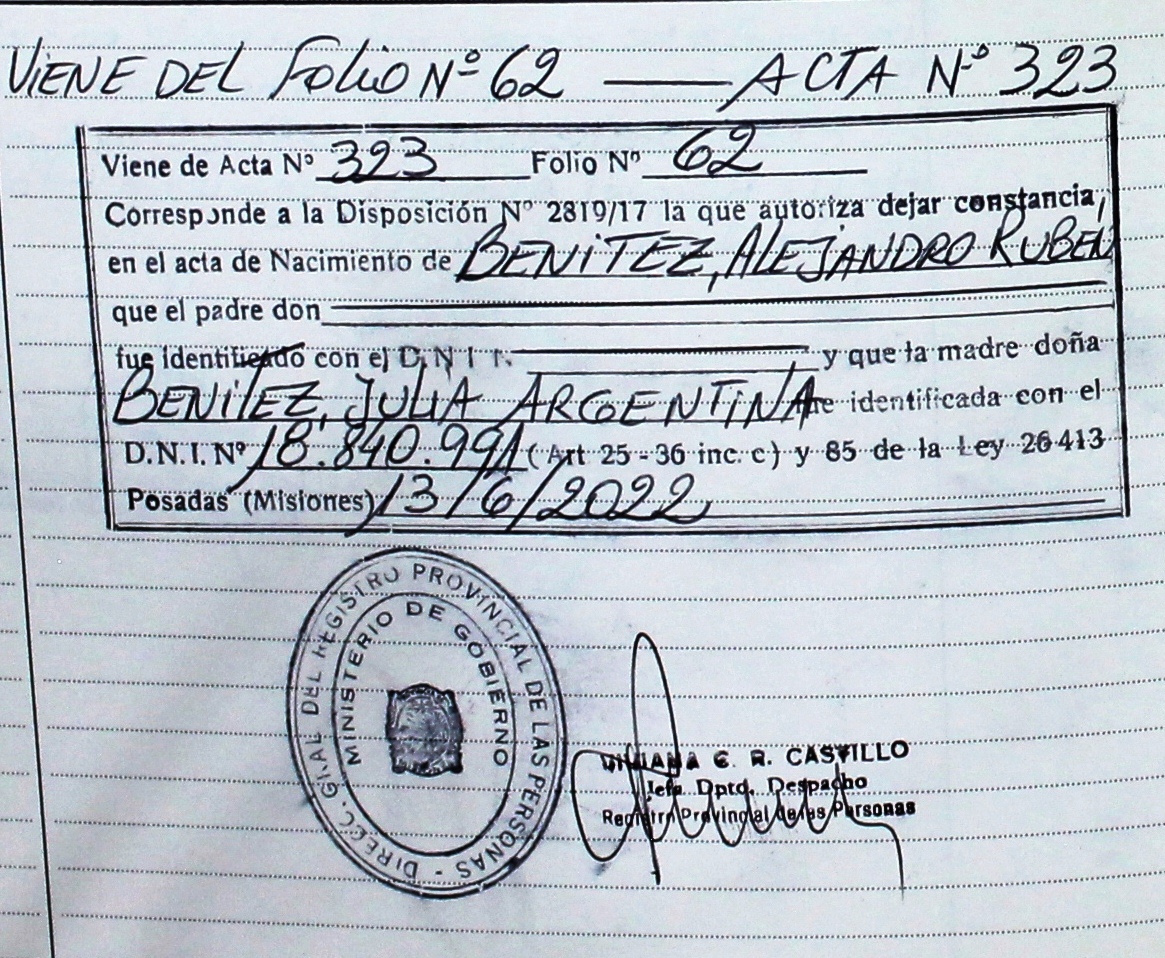 VIENE DEL FOLIO Nº 62 — ACTA Nº 323
Viene de Acta Nº 323 Folio Nº 62
Corresponde a la Disposición Nº 2819/17 la que autoriza dejar constancia,
en el acta de Nacimiento de BENITEZ, ALEJANDRO RUBEN
que el padre don
fue identificado con el D.N.I. y que la madre doña
BENITEZ, JULIA ARGENTINA identificada con el
D.N.I. Nº 18.840.991 (Art 25 - 36 inc. c) y 85 de la Ley 26413
Posadas (Misiones) 13/6/2022
DIRECC. GRAL DEL REGISTRO PROVINCIAL DE LAS PERSONAS -
MINISTERIO DE GOBIERNO
C. R. CASTILLO
Jefa Dptd. Despacho
Registro Provincial de las Personas